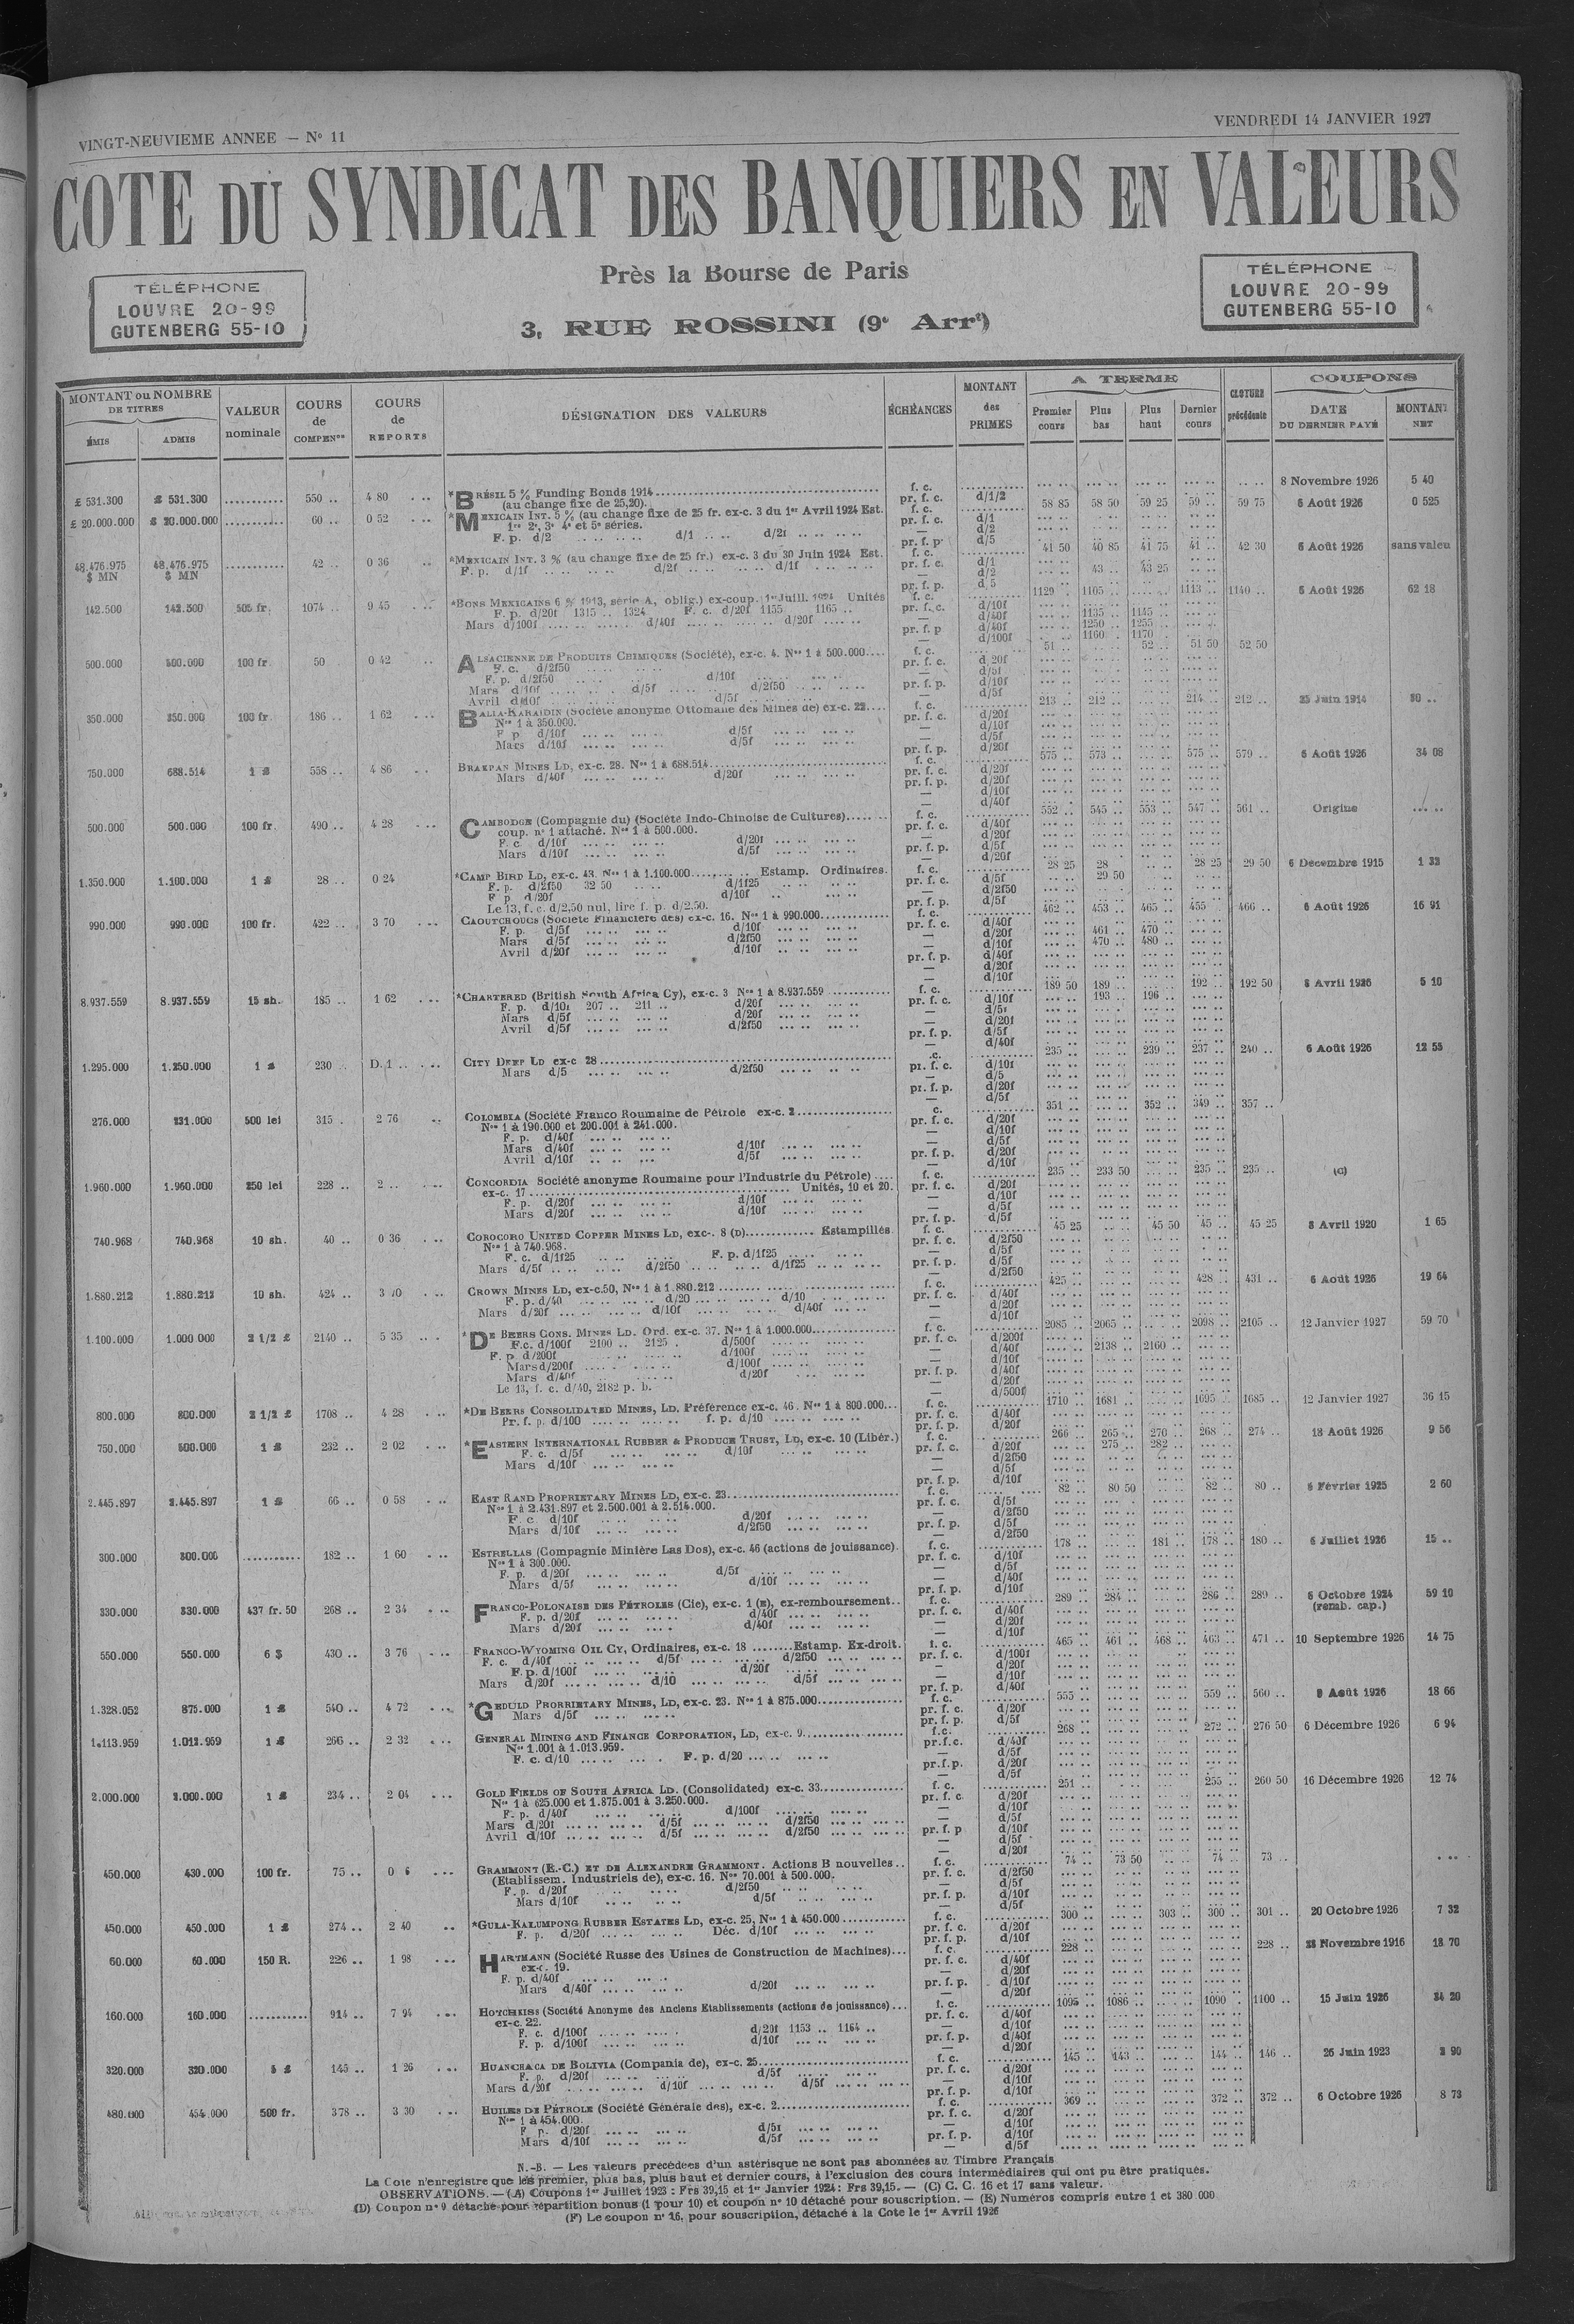 VINGT-NEUVIEME ANNEE — N° 11
VENDREDI 14 JANVIER 1927
COTE DU SYNDICAT DES BANQUIERS EN VALEURS
Près la Bourse de Paris
3, RUE ROSSINI (9e Arrt)
TÉLÉPHONE
LOUVRE 20-99
GUTENBERG 55-10
TÉLÉPHONE
LOUVRE 20-99
GUTENBERG 55-10
MONTANT ou NOMBRE DE TITRES
ÉMIS ADMIS
VALEUR nominale
COURS de COMPENon
COURS de REPORTS
DÉSIGNATION DES VALEURS
ÉCHÉANCES
MONTANT des PRIMES
A TERME
Premier cours Plus bas Plus haut Dernier cours
CLOTURE précédente
COUPONS
DATE DU DERNIER PAYÉ
MONTANT NET
£ 531.300 £ 531.300 550 .. 4 80 *BRÉSIL 5 % Funding Bonds 1914 f. c. 8 Novembre 1926 5 40
(au change fixe de 25,20). pr. f. c. d/1/2
£ 20.000.000 £ 20.000.000 60 .. 0 52 *MEXICAIN INT. 5 % (au change fixe de 25 fr. ex-c. 3 du 1er Avril 1924 Est. f. c. 58 85 58 50 59 25 59 .. 59 75 6 Août 1926 0 525
1re 2e, 3e 4e et 5e séries. pr. f. c. d/1
F. p. d/2 d/1 d/2f — d/2
pr. f. p. d/5
48.476.975 $ MN 48.476.975 $ MN 42 .. 0 36 *MEXICAIN INT. 3 % (au change fixe de 25 fr.) ex-c. 3 du 30 Juin 1924 Est. f. c. 41 50 40 85 41 75 41 .. 42 30 6 Août 1926 sans valeu
F. p. d/1f d/2f d/1f pr. f. c. d/1
— d/2 43 .. 43 25
pr. f. p. d/5
142.500 142.500 505 fr. 1074 .. 9 45 *BONS MEXICAINS 6 % 1913, série A, oblig.) ex-coup. 1er Juill. 1924 Unités f. c. 1129 .. 1105 .. 1113 .. 1140 .. 6 Août 1926 62 18
F. p. d/20f 1315 .. 1324 F. c. d/20f 1155 1165 .. pr. f. c. d/10f
Mars d/100f d/40f d/20f — d/40f 1135 .. 1145 ..
pr. f. p d/40f 1250 .. 1255 ..
— d/100f 1160 . 1170 .
500.000 500.000 100 fr. 50 0 42 ALSACIENNE DE PRODUITS CHIMIQUES (Société), ex-c. 4. Nos 1 à 500.000 f. c. 51 .. 52 .. 51 50 52 50
F. c. d/2f50 pr. f. c. d/20f
F. p. d/2f50 d/10f — d/5f
Mars d/10f d/5f d/2f50 pr. f. p. d/10f
Avril d/10f d/5f — d/5f
350.000 350.000 100 fr. 186 .. 1 62 BALIA-KARAIDIN (Société anonyme Ottomane des Mines de) ex-c. 22 f. c. 213 .. 212 .. 214 .. 212 .. 25 Juin 1914 30 ..
Nos 1 à 350.000. pr. f. c. d/20f
F p d/10f d/5f — d/10f
Mars d/10f d/5f — d/5f
pr. f. p. d/20f
750.000 688.514 1 £ 558 .. 4 86 BRAKPAN MINES LD, ex-c. 28. Nos 1 à 688.514 f. c. 575 .. 573 .. 575 .. 579 .. 6 Août 1926 34 08
Mars d/40f d/20f pr. f. c. d/20f
pr. f. p. d/20f
— d/10f
— d/40f
500.000 500.000 100 fr. 490 .. 4 28 CAMBODGE (Compagnie du) (Société Indo-Chinoise de Cultures) f. c. 552 .. 545 .. 553 .. 547 .. 561 .. Origine
coup. n° 1 attaché. Nos 1 à 500.000. pr. f. c. d/40f
F. c. d/10f d/20f — d/20f
Mars d/10f d/5f pr. f. p. d/5f
— d/20f
1.350.000 1.100.000 1 £ 28 .. 0 24 *CAMP BIRD LD, ex-c. 43. Nos 1 à 1.100.000 Estamp. Ordinaires. f. c. 28 25 28 .. 28 25 29 50 6 Decembre 1915 1 32
F. p. d/2f50 32 50 d/1f25 pr. f. c. d/5f 29 50
F p d/20f d/10f — d/2f50
Le 13, f. c. d/2,50 nul, lire f. p. d/2,50. pr. f. p. d/5f
990.000 990.000 100 fr. 422 .. 3 70 CAOUTCHOUCS (Société Financière des) ex-c. 16. Nos 1 à 990.000 f. c. 462 .. 453 .. 465 .. 455 .. 466 .. 6 Août 1926 16 91
F. p. d/5f d/10f pr. f. c. d/40f
Mars d/5f d/2f50 — d/20f 461 .. 470 ..
Avril d/20f d/10f — d/10f 470 .. 480 ..
pr. f. p. d/40f
— d/20f
— d/10f
8.937.559 8.937.559 15 sh. 185 .. 1 62 *CHARTERED (British South Africa Cy), ex-c. 3 Nos 1 à 8.937.559 f. c. 189 50 189 .. 192 .. 192 50 8 Avril 1926 5 10
F. p. d/10f 207 .. 211 .. d/20f pr. f. c. d/10f 193 .. 196 ..
Mars d/5f d/20f — d/5f
Avril d/5f d/2f50 — d/20f
pr. f. p. d/5f
— d/40f
1.295.000 1.250.000 1 £ 230 . D. 1 .. CITY DEEP LD ex-c 28 .c. 235 .. 239 .. 237 .. 240 .. 6 Août 1926 12 55
Mars d/5 d/2f50 pr. f. c. d/10f
— d/5
pr. f. p. d/20f
— d/5f
276.000 231.000 500 lei 315 . 2 76 COLOMBIA (Société Franco Roumaine de Pétrole ex-c. 2 c. 351 .. 352 .. 349 .. 357 ..
Nos 1 à 190.000 et 200.001 à 241.000. pr. f. c. d/20f
F. p. d/40f — d/10f
Mars d/40f d/10f — d/5f
Avril d/10f d/5f pr. f. p. d/20f
— d/10f
1.960.000 1.960.000 250 lei 228 .. 2 .. CONCORDIA Société anonyme Roumaine pour l'Industrie du Pétrole) f. c. 235 .. 233 50 235 .. 235 .. (C)
ex-c. 17 Unités, 10 et 20. pr. f. c. d/20f
F. p. d/20f d/10f — d/10f
Mars d/20f d/10f — d/5f
pr. f. p. d/5f
740.968 740.968 10 sh. 40 .. 0 36 COROCORO UNITED COPPER MINES LD, exc-. 8 (D) Estampillés f. c. 45 25 45 50 45 .. 45 25 8 Avril 1920 1 65
Nos 1 à 740.968. pr. f. c. d/2f50
F. c. d/1f25 F. p. d/1f25 — d/5f
Mars d/5f d/2f50 d/1f25 pr. f. p. d/5f
— d/2f50
1.880.212 1.880.212 10 sh. 424 .. 3 70 CROWN MINES LD, ex-c.50, Nos 1 à 1.880.212 f. c. 425 .. 428 .. 431 .. 6 Août 1926 19 64
F. p. d/40 d/20 d/10 pr. f. c. d/40f
Mars d/20f d/10f d/40f — d/20f
— d/10f
1.100.000 1.000 000 2 1/2 £ 2140 .. 5 35 *DE BEERS CONS. MINES LD. Ord. ex-c. 37. Nos 1 à 1.000.000 f. c. 2085 .. 2065 .. 2098 .. 2105 .. 12 Janvier 1927 59 70
F.c. d/100f 2100 .. 2125 . d/500f pr. f. c. d/200f
F. p. d/200f d/100f — d/40f 2138 .. 2160 ..
Mars d/200f d/100f — d/10f
Mars d/40f d/20f pr. f. p. d/40f
Le 13, f. c. d/40, 2182 p. b. — d/20f
— d/500f
800.000 800.000 2 1/2 £ 1708 .. 4 28 *DE BEERS CONSOLIDATED MINES, LD. Préférence ex-c. 46. Nos 1 à 800.000 f. c. 1710 .. 1681 .. 1695 .. 1685 .. 12 Janvier 1927 36 15
Pr. f. p. d/100 f. p. d/10 pr. f. c. d/40f
pr. f. p. d/20f
750.000 500.000 1 £ 232 .. 2 02 *EASTERN INTERNATIONAL RUBBER & PRODUCE TRUST, LD, ex-c. 10 (Libér.) f. c. 266 .. 265 .. 270 .. 268 .. 274 .. 18 Août 1926 9 56
F. c. d/5f d/10f pr. f. c. d/20f 275 .. 282 ..
Mars d/10f — d/2f50
— d/5f
pr. f. p. d/10f
2.445.897 2.445.897 1 £ 66 .. 0 58 EAST RAND PROPRIETARY MINES LD, ex-c. 23 f. c. 82 .. 80 50 82 .. 80 .. 6 Février 1925 2 60
Nos 1 à 2.431.897 et 2.500.001 à 2.514.000. pr. f. c. d/5f
F. c d/10f d/20f — d/2f50
Mars d/10f d/2f50 pr. f. p. d/5f
— d/2f50
300.000 300.000 182 .. 1 60 ESTRELLAS (Compagnie Minière Las Dos), ex-c. 46 (actions de jouissance). f. c. 178 .. 181 .. 178 .. 180 .. 6 Juillet 1926 15 ..
Nos 1 à 300.000. pr. f. c. d/10f
F. p. d/20f d/5f — d/5f
Mars d/5f d/10f — d/40f
pr. f. p. d/10f
330.000 330.000 437 fr. 50 268 .. 2 34 FRANCO-POLONAISE DES PÉTROLES (Cie), ex-c. 1 (E), ex-remboursement f. c. 289 .. 284 .. 286 .. 289 .. 6 Octobre 1924 59 10
F. p. d/20f d/40f pr. f. c. d/40f (remb. cap.)
Mars d/20f d/40f — d/20f
— d/10f
550.000 550.000 6 $ 430 .. 3 76 FRANCO-WYOMING OIL CY, Ordinaires, ex-c. 18 Estamp. Ex-droit. f. c. 465 .. 461 .. 468 .. 463 .. 471 .. 10 Septembre 1926 14 75
F. c. d/40f d/5f d/2f50 pr. f. c. d/100f
F. p. d/100f d/20f — d/20f
Mars d/20f d/10 d/5f — d/10f
pr. f. p. d/40f
1.328.052 875.000 1 £ 540 .. 4 72 *GEDULD PRORRIETARY MINES, LD, ex-c. 23. Nos 1 à 875.000 f. c. 555 .. 559 .. 560 .. 9 Août 1926 18 66
Mars d/5f pr. f. c. d/20f
pr. f. p. d/5f
1.113.959 1.013.959 1 £ 266 .. 2 32 GENERAL MINING AND FINANCE CORPORATION, LD, ex-c. 9 f.c. 268 .. 272 .. 276 50 6 Décembre 1926 6 94
Nos 1.001 à 1.013.959. pr.f.c. d/40f
F. c. d/10 F. p. d/20 — d/5f
pr.f.p. d/20f
— d/5f
2.000.000 2.000.000 1 £ 234 .. 2 04 GOLD FIELDS OF SOUTH AFRICA LD. (Consolidated) ex-c. 33 f. c. 251 .. 255 .. 260 50 16 Décembre 1926 12 74
Nos 1 à 625.000 et 1.875.001 à 3.250.000. pr. f. c d/20f
F. p. d/40f d/100f — d/10f
Mars d/20f d/5f d/2f50 — d/5f
Avril d/10f d/5f d/2f50 pr. f. p d/10f
— d/5f
— d/20f
450.000 430.000 100 fr. 75 .. 0 6 GRAMMONT (E.-C.) ET DE ALEXANDRE GRAMMONT. Actions B nouvelles f. c. 74 .. 73 50 74 .. 73 ..
(Etablissem. Industriels de), ex-c. 16. Nos 70.001 à 500.000. pr. f. c. d/2f50
F. p. d/20f d/2f50 — d/5f
Mars d/10f d/5f pr. f. p. d/10f
— d/5f
450.000 450.000 1 £ 274 .. 2 40 *GULA-KALUMPONG RUBBER ESTATES LD, ex-c. 25, Nos 1 à 450.000 f. c. 300 .. 303 .. 300 .. 301 .. 20 Octobre 1926 7 32
F. p. d/20f Déc. d/10f pr. f. c. d/20f
pr. f. p. d/10f
60.000 60.000 150 R. 226 .. 1 98 HARTMANN (Société Russe des Usines de Construction de Machines) f. c. 228 .. 228 .. 28 Novembre 1916 18 70
ex-c. 19. pr. f. c. d/40f
F. p. d/40f — d/20f
Mars d/40f d/20f pr. f. p. d/10f
— d/20f
160.000 160.000 914 .. 7 94 HOTCHKISS (Société Anonyme des Anciens Etablissements (actions de jouissance) f. c. 1095 .. 1086 .. 1090 . 1100 .. 15 Juin 1926 34 20
ex-c. 22. pr. f. c. d/40f
F. c. d/100f d/20f 1153 .. 1164 .. — d/10f
F. p. d/100f d/10f pr. f. p. d/40f
— d/20f
320.000 320.000 5 £ 145 .. 1 26 HUANCHACA DE BOLIVIA (Compania de), ex-c. 25 f. c. 145 .. 143 .. 144 .. 146 .. 26 Juin 1923 2 90
F. p. d/20f d/5f pr. f. c. d/20f
Mars d/20f d/10f d/5f — d/10f
pr. f. p. d/10f
480.000 454.000 500 fr. 378 .. 3 30 HUILES DE PÉTROLE (Société Générale des), ex-c. 2 f. c. 369 .. 372 .. 372 .. 6 Octobre 1926 8 73
Nos 1 à 454.000. pr. f. c. d/20f
F p. d/20f d/5f — d/10f
Mars d/10f d/5f pr. f. p. d/10f
— d/5f
N.-B. — Les valeurs précédées d'un astérisque ne sont pas abonnées au Timbre Français
La Cote n'enregistre que les premier, plus bas, plus haut et dernier cours, à l'exclusion des cours intermédiaires qui ont pu être pratiqués.
OBSERVATIONS. — (A) Coupons 1er Juillet 1923 : Frs 39,15 et 1er Janvier 1924 : Frs 39,15. — (C) C. C. 16 et 17 sans valeur.
(D) Coupon n° 9 détaché pour répartition bonus (1 pour 10) et coupon n° 10 détaché pour souscription. — (E) Numéros compris entre 1 et 380 000
(F) Le coupon n° 16, pour souscription, détaché à la Cote le 1er Avril 1926